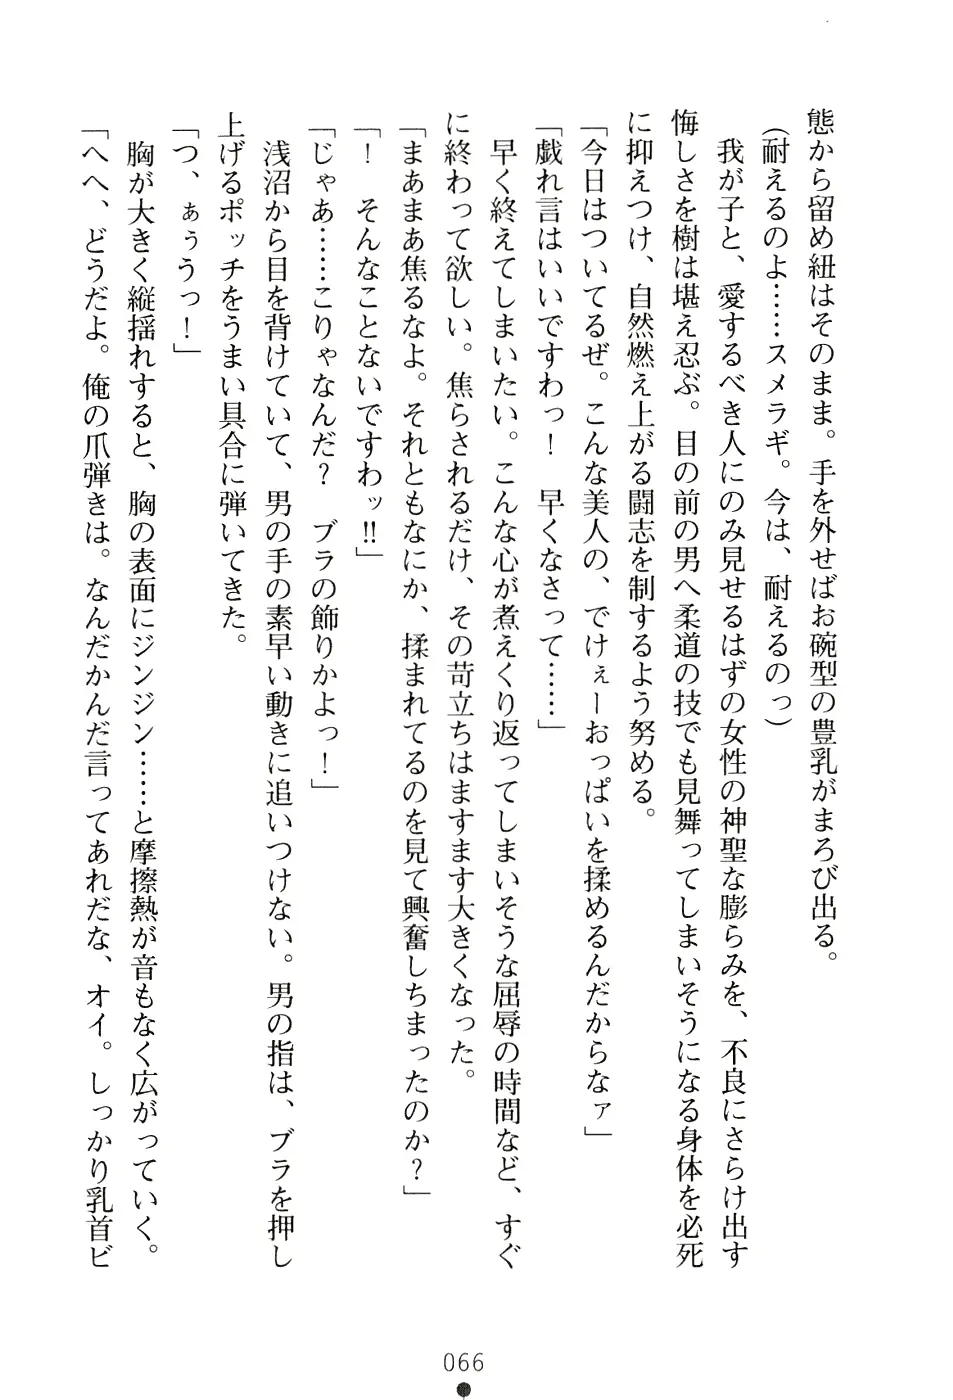 態から留め紐はそのまま。手を外せばお碗型の豊乳がまろび出る。
(耐えるのよ……スメラギ。今は、耐えるのっ)
我が子と、愛するべき人にのみ見せるはずの女性の神聖な膨らみを、不良にさらけ出す
悔しさを樹は堪え忍ぶ。目の前の男へ柔道の技でも見舞ってしまいそうになる身体を必死
に抑えつけ、自然燃え上がる闘志を制するよう努める。
「今日はついてるぜ。こんな美人の、でけぇーおっぱいを揉めるんだからなァ」
「戯れ言はいいですわっ！　早くなさって……」
早く終えてしまいたい。こんな心が煮えくり返ってしまいそうな屈辱の時間など、すぐ
に終わって欲しい。焦らされるだけ、その苛立ちはますます大きくなった。
「まあまあ焦るなよ。それともなにか、揉まれてるのを見て興奮しちまったのか？」
「！　そんなことないですわッ!!」
「じゃあ……こりゃなんだ？　ブラの飾りかよっ！」
浅沼から目を背けていて、男の手の素早い動きに追いつけない。男の指は、ブラを押し
上げるポッチをうまい具合に弾いてきた。
「つ、ぁぅうっ！」
胸が大きく縦揺れすると、胸の表面にジンジン……と摩擦熱が音もなく広がっていく。
「へへ、どうだよ。俺の爪弾きは。なんだかんだ言ってあれだな、オイ。しっかり乳首ビ
066